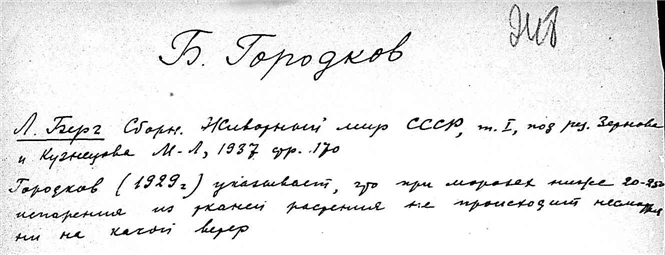 Б. Городков
Л. Берг Сборн. Животный мир СССР, т. I, под ред. Зернова
и Кузнецова М-Л, 1937 стр. 170
Городков (1929г) указывает, что при морозах ниже 20-25°
испарения из тканей растения не происходит несмотря
ни на какой ветер